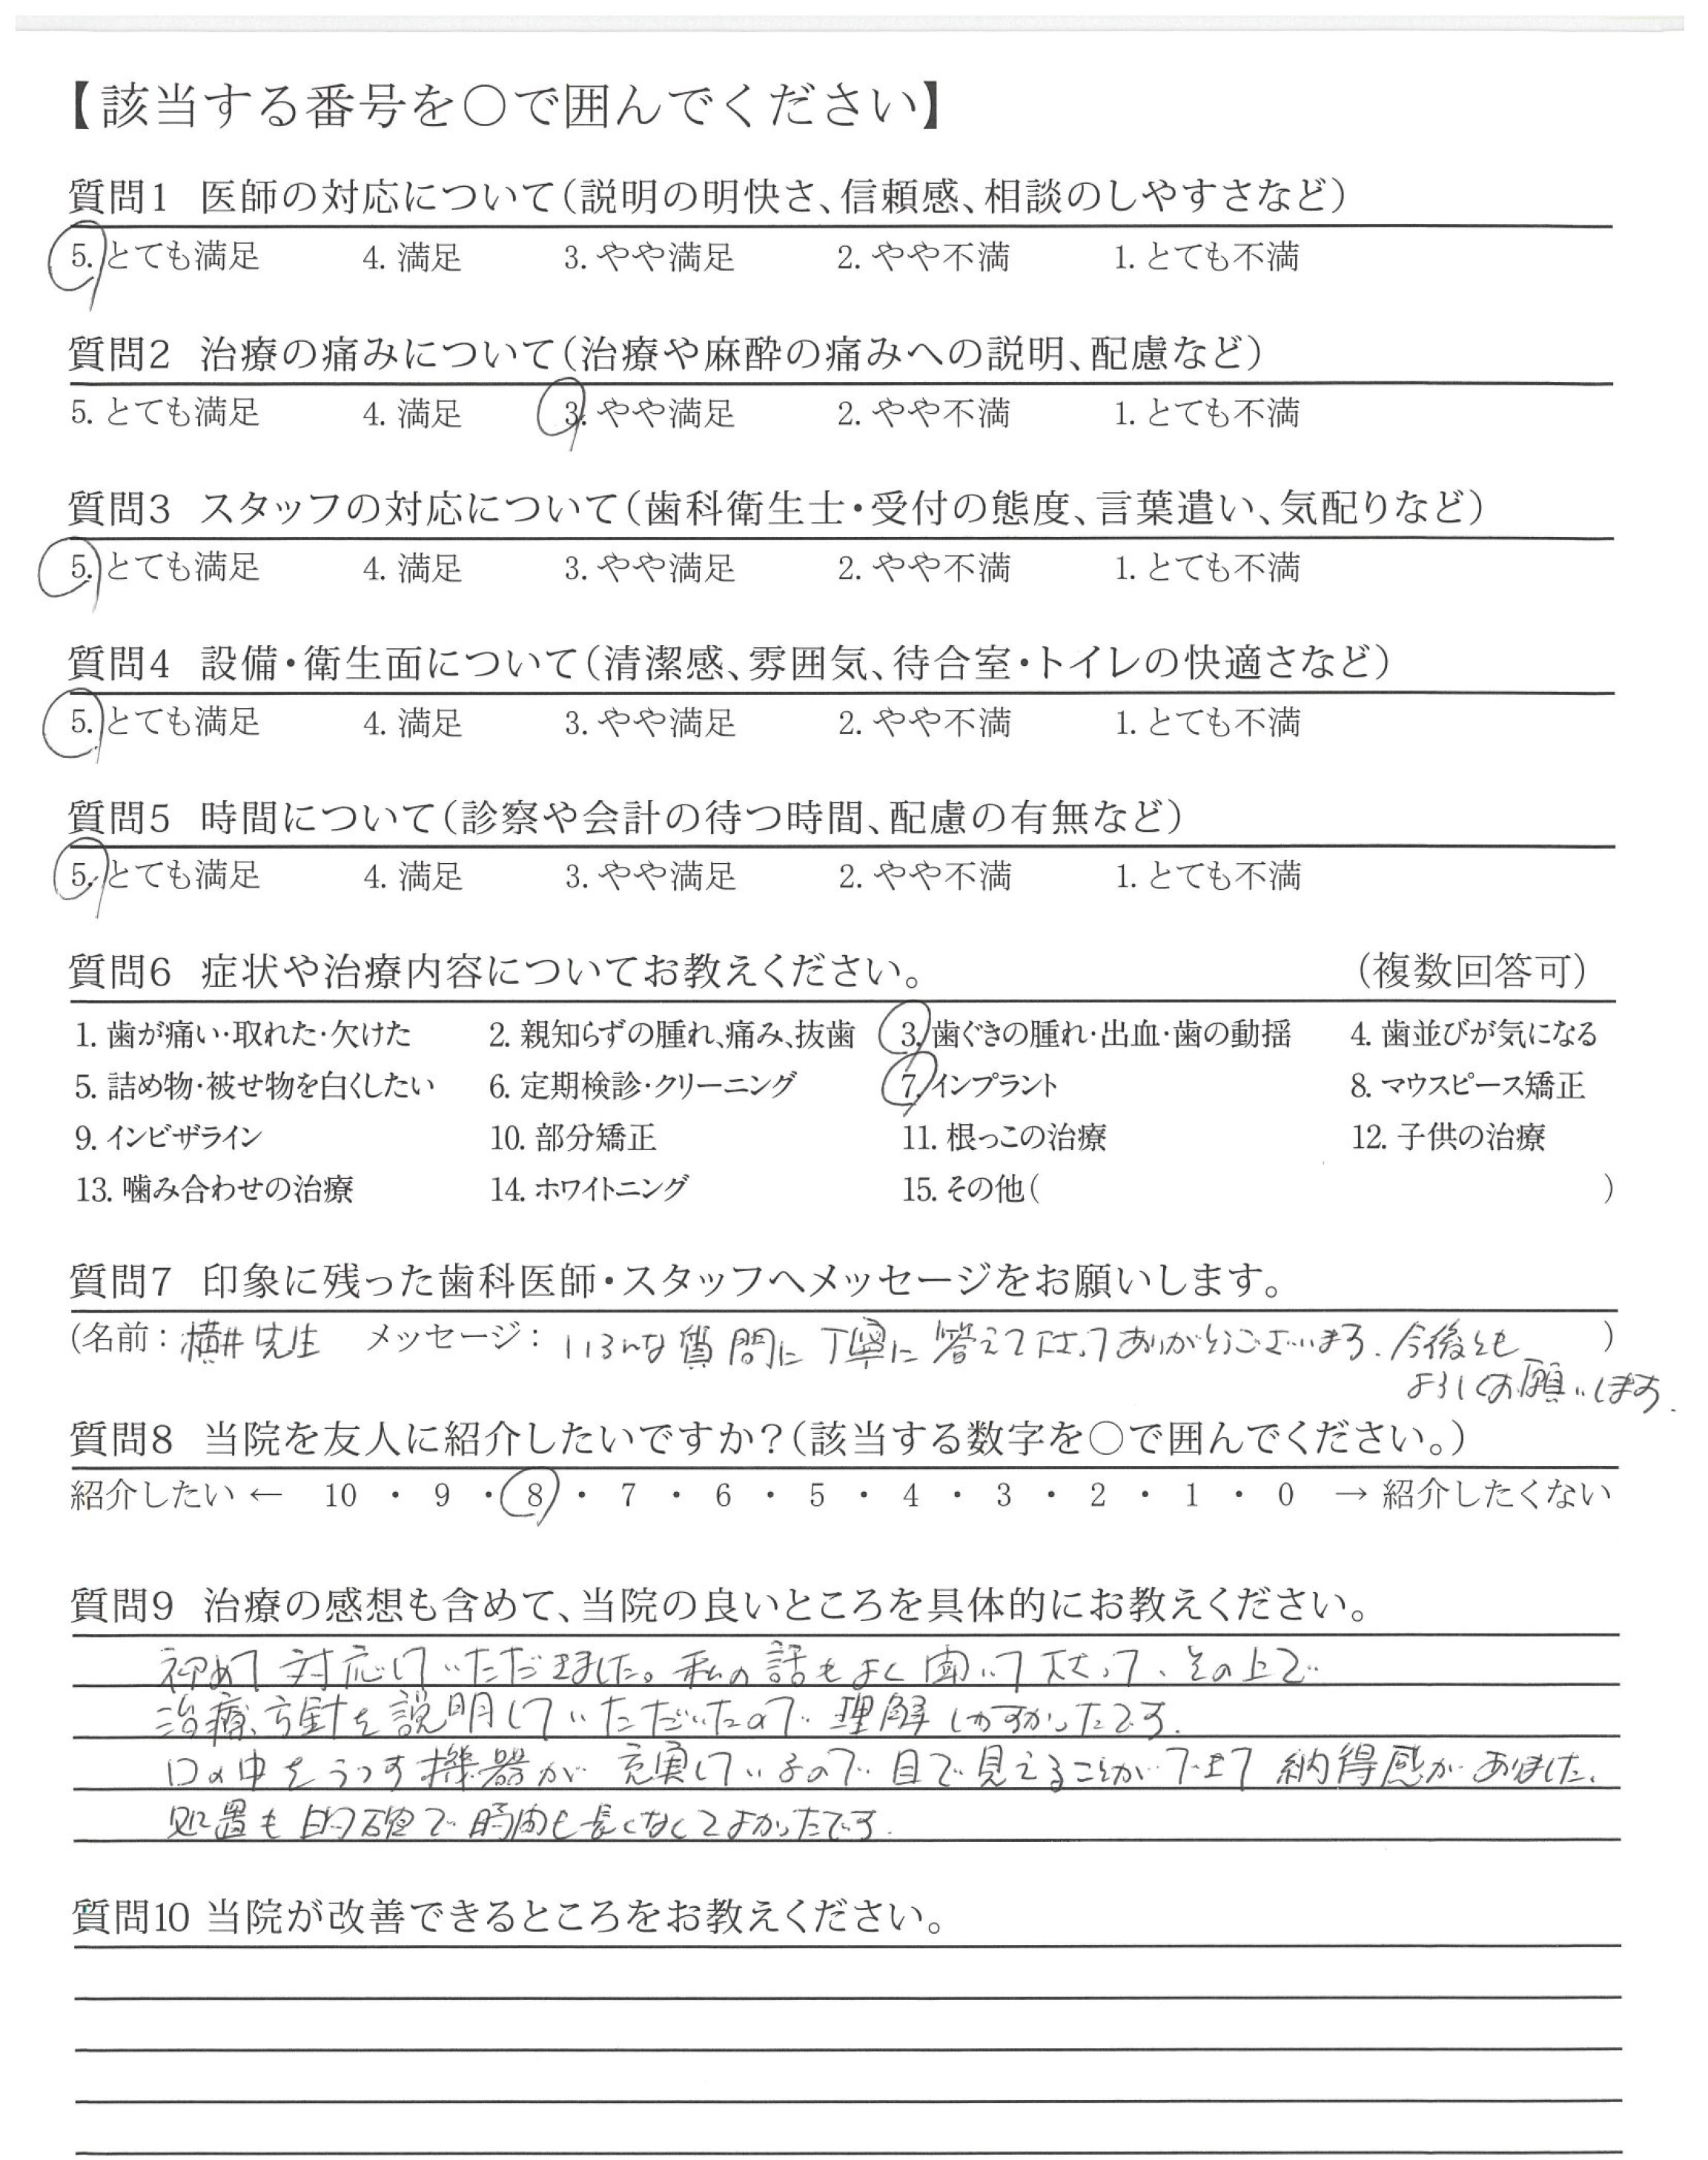 【該当する番号を○で囲んでください】
質問1 医師の対応について(説明の明快さ、信頼感、相談のしやすさなど)
5. とても満足 4. 満足 3. やや満足 2. やや不満 1. とても不満
質問2 治療の痛みについて(治療や麻酔の痛みへの説明、配慮など)
5. とても満足 4. 満足 3. やや満足 2. やや不満 1. とても不満
質問3 スタッフの対応について(歯科衛生士・受付の態度、言葉遣い、気配りなど)
5. とても満足 4. 満足 3. やや満足 2. やや不満 1. とても不満
質問4 設備・衛生面について(清潔感、雰囲気、待合室・トイレの快適さなど)
5. とても満足 4. 満足 3. やや満足 2. やや不満 1. とても不満
質問5 時間について(診察や会計の待つ時間、配慮の有無など)
5. とても満足 4. 満足 3. やや満足 2. やや不満 1. とても不満
質問6 症状や治療内容についてお教えください。 (複数回答可)
1. 歯が痛い・取れた・欠けた 2. 親知らずの腫れ、痛み、抜歯 3. 歯ぐきの腫れ・出血・歯の動揺 4. 歯並びが気になる
5. 詰め物・被せ物を白くしたい 6. 定期検診・クリーニング 7. インプラント 8. マウスピース矯正
9. インビザライン 10. 部分矯正 11. 根っこの治療 12. 子供の治療
13. 噛み合わせの治療 14. ホワイトニング 15. その他( )
質問7 印象に残った歯科医師・スタッフへメッセージをお願いします。
(名前: 横井先生 メッセージ: いろんな質問に丁寧に答えて下さってありがとうございます. 今後とも )
よろしくお願いします.
質問8 当院を友人に紹介したいですか?(該当する数字を○で囲んでください。)
紹介したい ← 10 ・ 9 ・ 8 ・ 7 ・ 6 ・ 5 ・ 4 ・ 3 ・ 2 ・ 1 ・ 0 → 紹介したくない
質問9 治療の感想も含めて、当院の良いところを具体的にお教えください。
初めて対応していただきました。私の話もよく聞いて下さって、その上で
治療方針を説明していただいたので理解しやすかったです.
口の中をうつす機器が充実しているので目で見えることができて納得感がありました.
処置も的確で時間も長くなくてよかったです.
質問10 当院が改善できるところをお教えください。